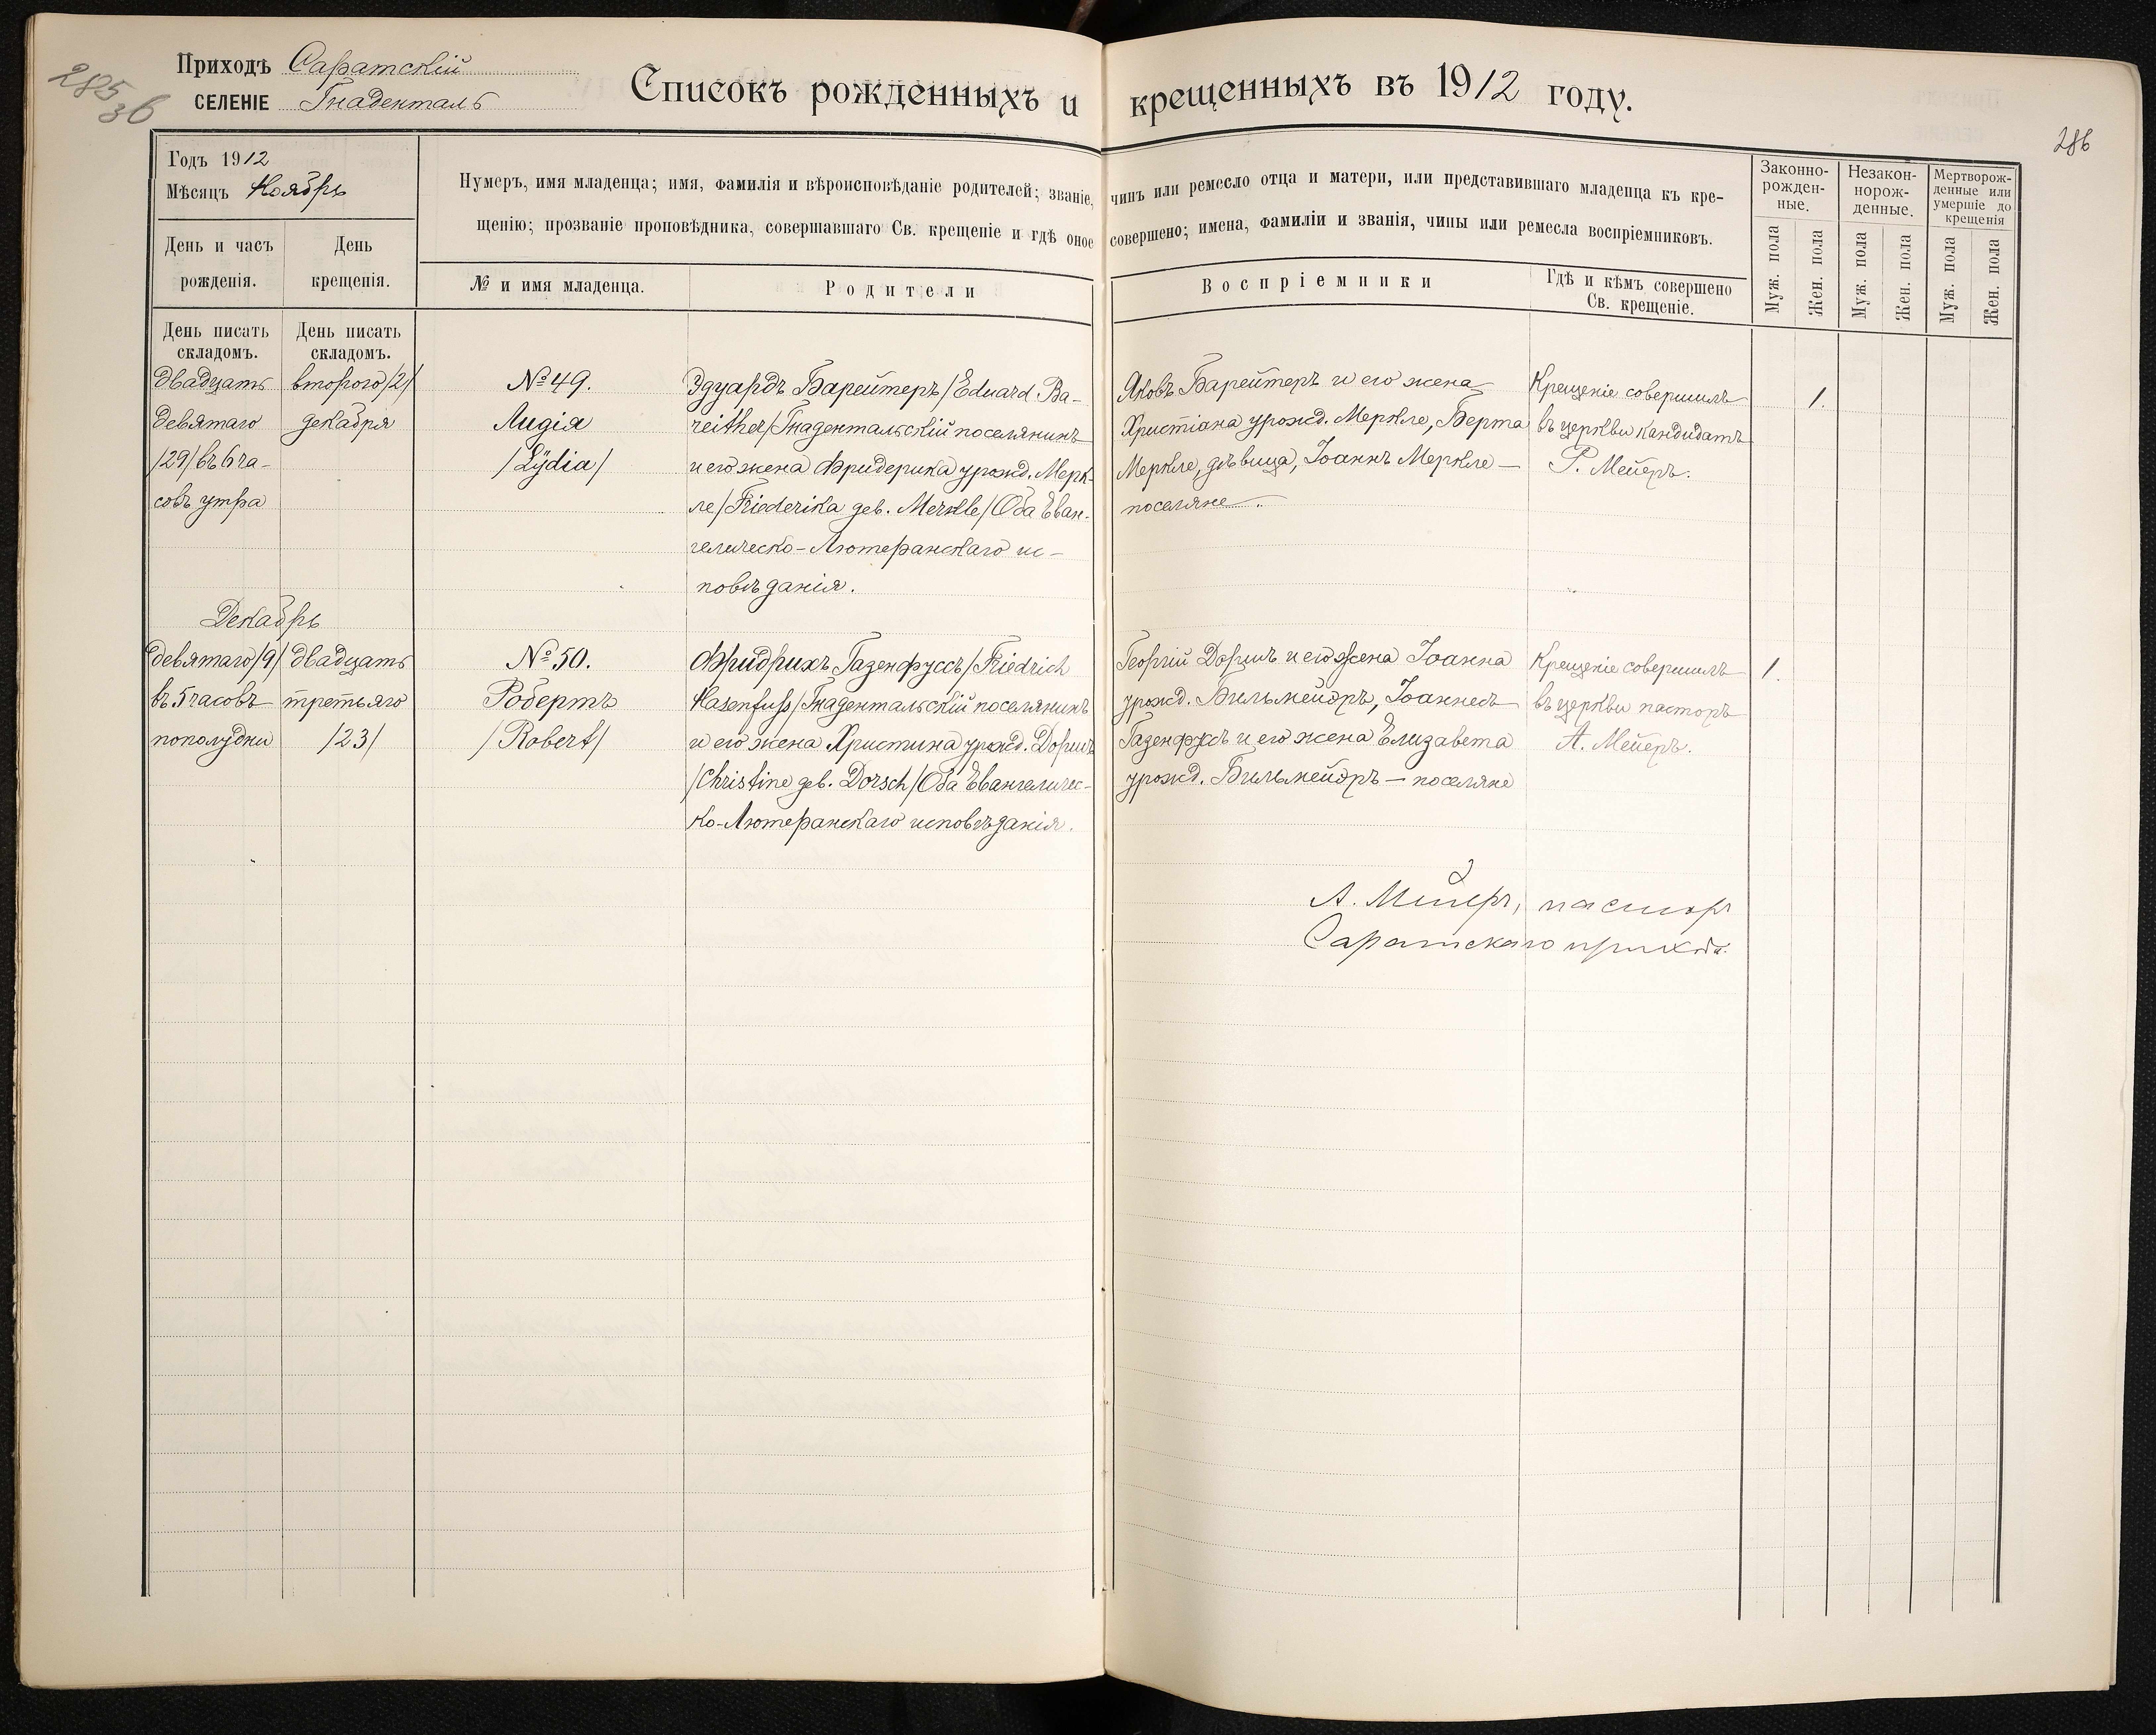 285
36
Приходъ Саратскій
СЕЛЕНІЕ Гнаденталь
Списокъ рожденныхъ и крещенныхъ въ 1912 году.
286
Годъ 1912
Мѣсяцъ Ноябрь
День и часъ рожденія.
День крещенія.
Нумеръ, имя младенца; имя, фамилія и вѣроисповѣданіе родителей; званіе, чинъ или ремесло отца и матери, или представившаго младенца къ кре-
щенію; прозваніе проповѣдника, совершавшаго Св. крещеніе и гдѣ оное совершено; имена, фамиліи и званія, чины или ремесла воспріемниковъ.
№ и имя младенца.
Родители
Воспріемники
Гдѣ и кѣмъ совершено
Св. крещеніе.
Законно-
рожден-
ные.
Незакон-
норож-
денные.
Мертворож-
денные или
умершіе до
крещенія
Муж. пола
Жен. пола
Муж. пола
Жен. пола
Муж. пола
Жен. пола
День писать
складомъ.
День писать
складомъ.
двадцать
девятаго
/29/ въ 6 ча-
совъ утра
второго /2/
декабря
№ 49.
Лидія
/Lÿdia/
Эдуардъ Барейтеръ /Eduard Ba-
reither/ Гнадентальскій поселянинъ
и его жена Фридерика урожд. Мерк-
ле /Friederika geb. Merkle/ Оба Еван-
гелическо-Лютеранскаго ис-
повѣданія.
Яковъ Барейтеръ и его жена
Христіана урожд. Меркле, Берта
Меркле, дѣвица, Іоаннъ Меркле —
поселяне.
Крещеніе совершилъ
въ церкви кандидатъ
Р. Мейеръ.
1.
Декабрь
девятаго /9/
въ 5 часовъ
пополудни
двадцать
третьяго
/23/
№ 50.
Робертъ
/Robert/
Фридрихъ Газенфуссъ /Friedrich
Hasenfuß/ Гнадентальскій поселянинъ
и его жена Христина урожд. Доршъ
/Christine geb. Dorsch/ Оба Евангеличес-
ко-Лютеранскаго исповѣданія.
Георгій Доршъ и его жена Іоанна
урожд. Бильмейэръ, Іоаннесъ
Газенфуссъ и его жена Елизавета
урожд. Бильмейэръ — поселяне
Крещеніе совершилъ
въ церкви пасторъ
А. Мейеръ.
1.
А. Мейеръ, пасторъ
Саратскаго прихода.